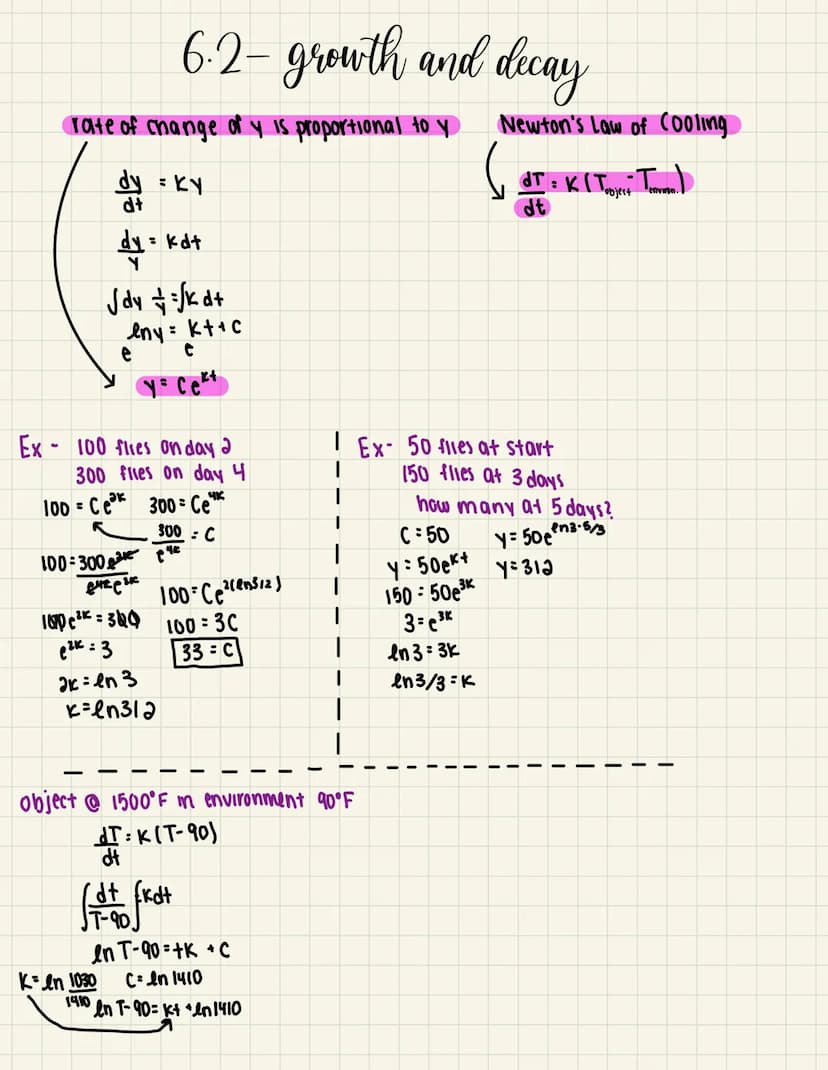 6.2- growth and decay
rate of change of y is proportional to y
dy/dt = Ky
dy/y = kdt
∫dy 1/y = ∫k dt
lny = kt+c
e e
y = Ce^kt
Newton's Law of Cooling
dT/dt = K(Tobject - Tenviron.)
Ex - 100 flies on day 2
300 flies on day 4
100 = Ce^2k 300 = Ce^4k
300/e^4k = C
100 = 300e^2k/e^4k e^2k
100e^2k = 300
e^2k = 3
2k = ln 3
k = ln3/2
100 = Ce^2(ln3/2)
100 = 3C
33 = C
Ex- 50 flies at start
150 flies at 3 days
how many at 5 days?
C = 50
y = 50e^kt
150 = 50e^3k
3 = e^3k
ln 3 = 3k
ln3/3 = k
y = 50e^ln3·5/3
y = 312
object @ 1500°F in environment 90°F
dT/dt = K(T-90)
∫dt/T-90 ∫kdt
ln T-90 = tk + C
K = ln 1030/1410 C = ln 1410
ln T-90 = kt + ln1410